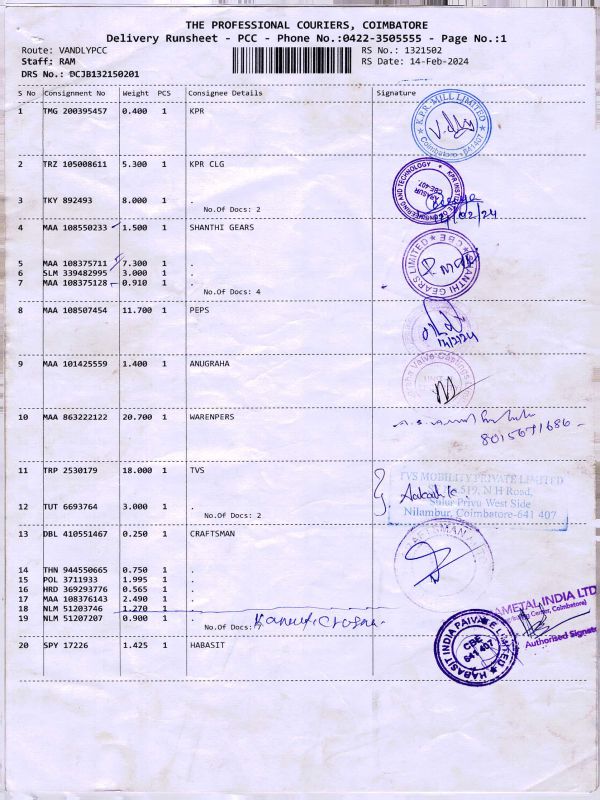 THE PROFESSIONAL COURIERS, COIMBATORE
Delivery Runsheet - PCC - Phone No.:0422-3505555 - Page No.:1
Route: VANDLYPCC RS No.: 1321502
Staff: RAM RS Date: 14-Feb-2024
DRS No.: DCJB132150201
S No Consignment No Weight PCS Consignee Details Signature
1 TMG 200395457 0.400 1 KPR
K.P.R. MILL LIMITED
Coimbatore - 641407
2 TRZ 105008611 5.300 1 KPR CLG
3 TKY 892493 8.000 1 .
No.Of Docs: 2
4 MAA 108550233 1.500 1 SHANTHI GEARS
SHANTHI GEARS LIMITED CBE
5 MAA 108375711 7.300 1 .
6 SLM 339482995 3.000 1 .
7 MAA 108375128 0.910 1 .
No.Of Docs: 4
8 MAA 108507454 11.700 1 PEPS
14/2/24
9 MAA 101425559 1.400 1 ANUGRAHA
10 MAA 863222122 20.700 1 WARENPERS
8015671686
11 TRP 2530179 18.000 1 TVS
TVS MOBILITY PRIVATE LIMITED
519, N H Road,
Sulur Privu West Side
Nilambur, Coimbatore-641 407
12 TUT 6693764 3.000 1 .
No.Of Docs: 2
13 DBL 410551467 0.250 1 CRAFTSMAN
14 THN 944550665 0.750 1 .
15 POL 3711933 1.995 1 .
16 HRD 369293776 0.565 1 .
17 MAA 108376143 2.490 1 .
18 NLM 51203746 1.270 1 .
19 NLM 51207207 0.900 1 .
No.Of Docs:
AMETAL INDIA LTD
Coimbatore)
Authorised Signato
20 SPY 17226 1.425 1 HABASIT
HABASIT INDIA PRIVATE LIMITED
CBE
641 407